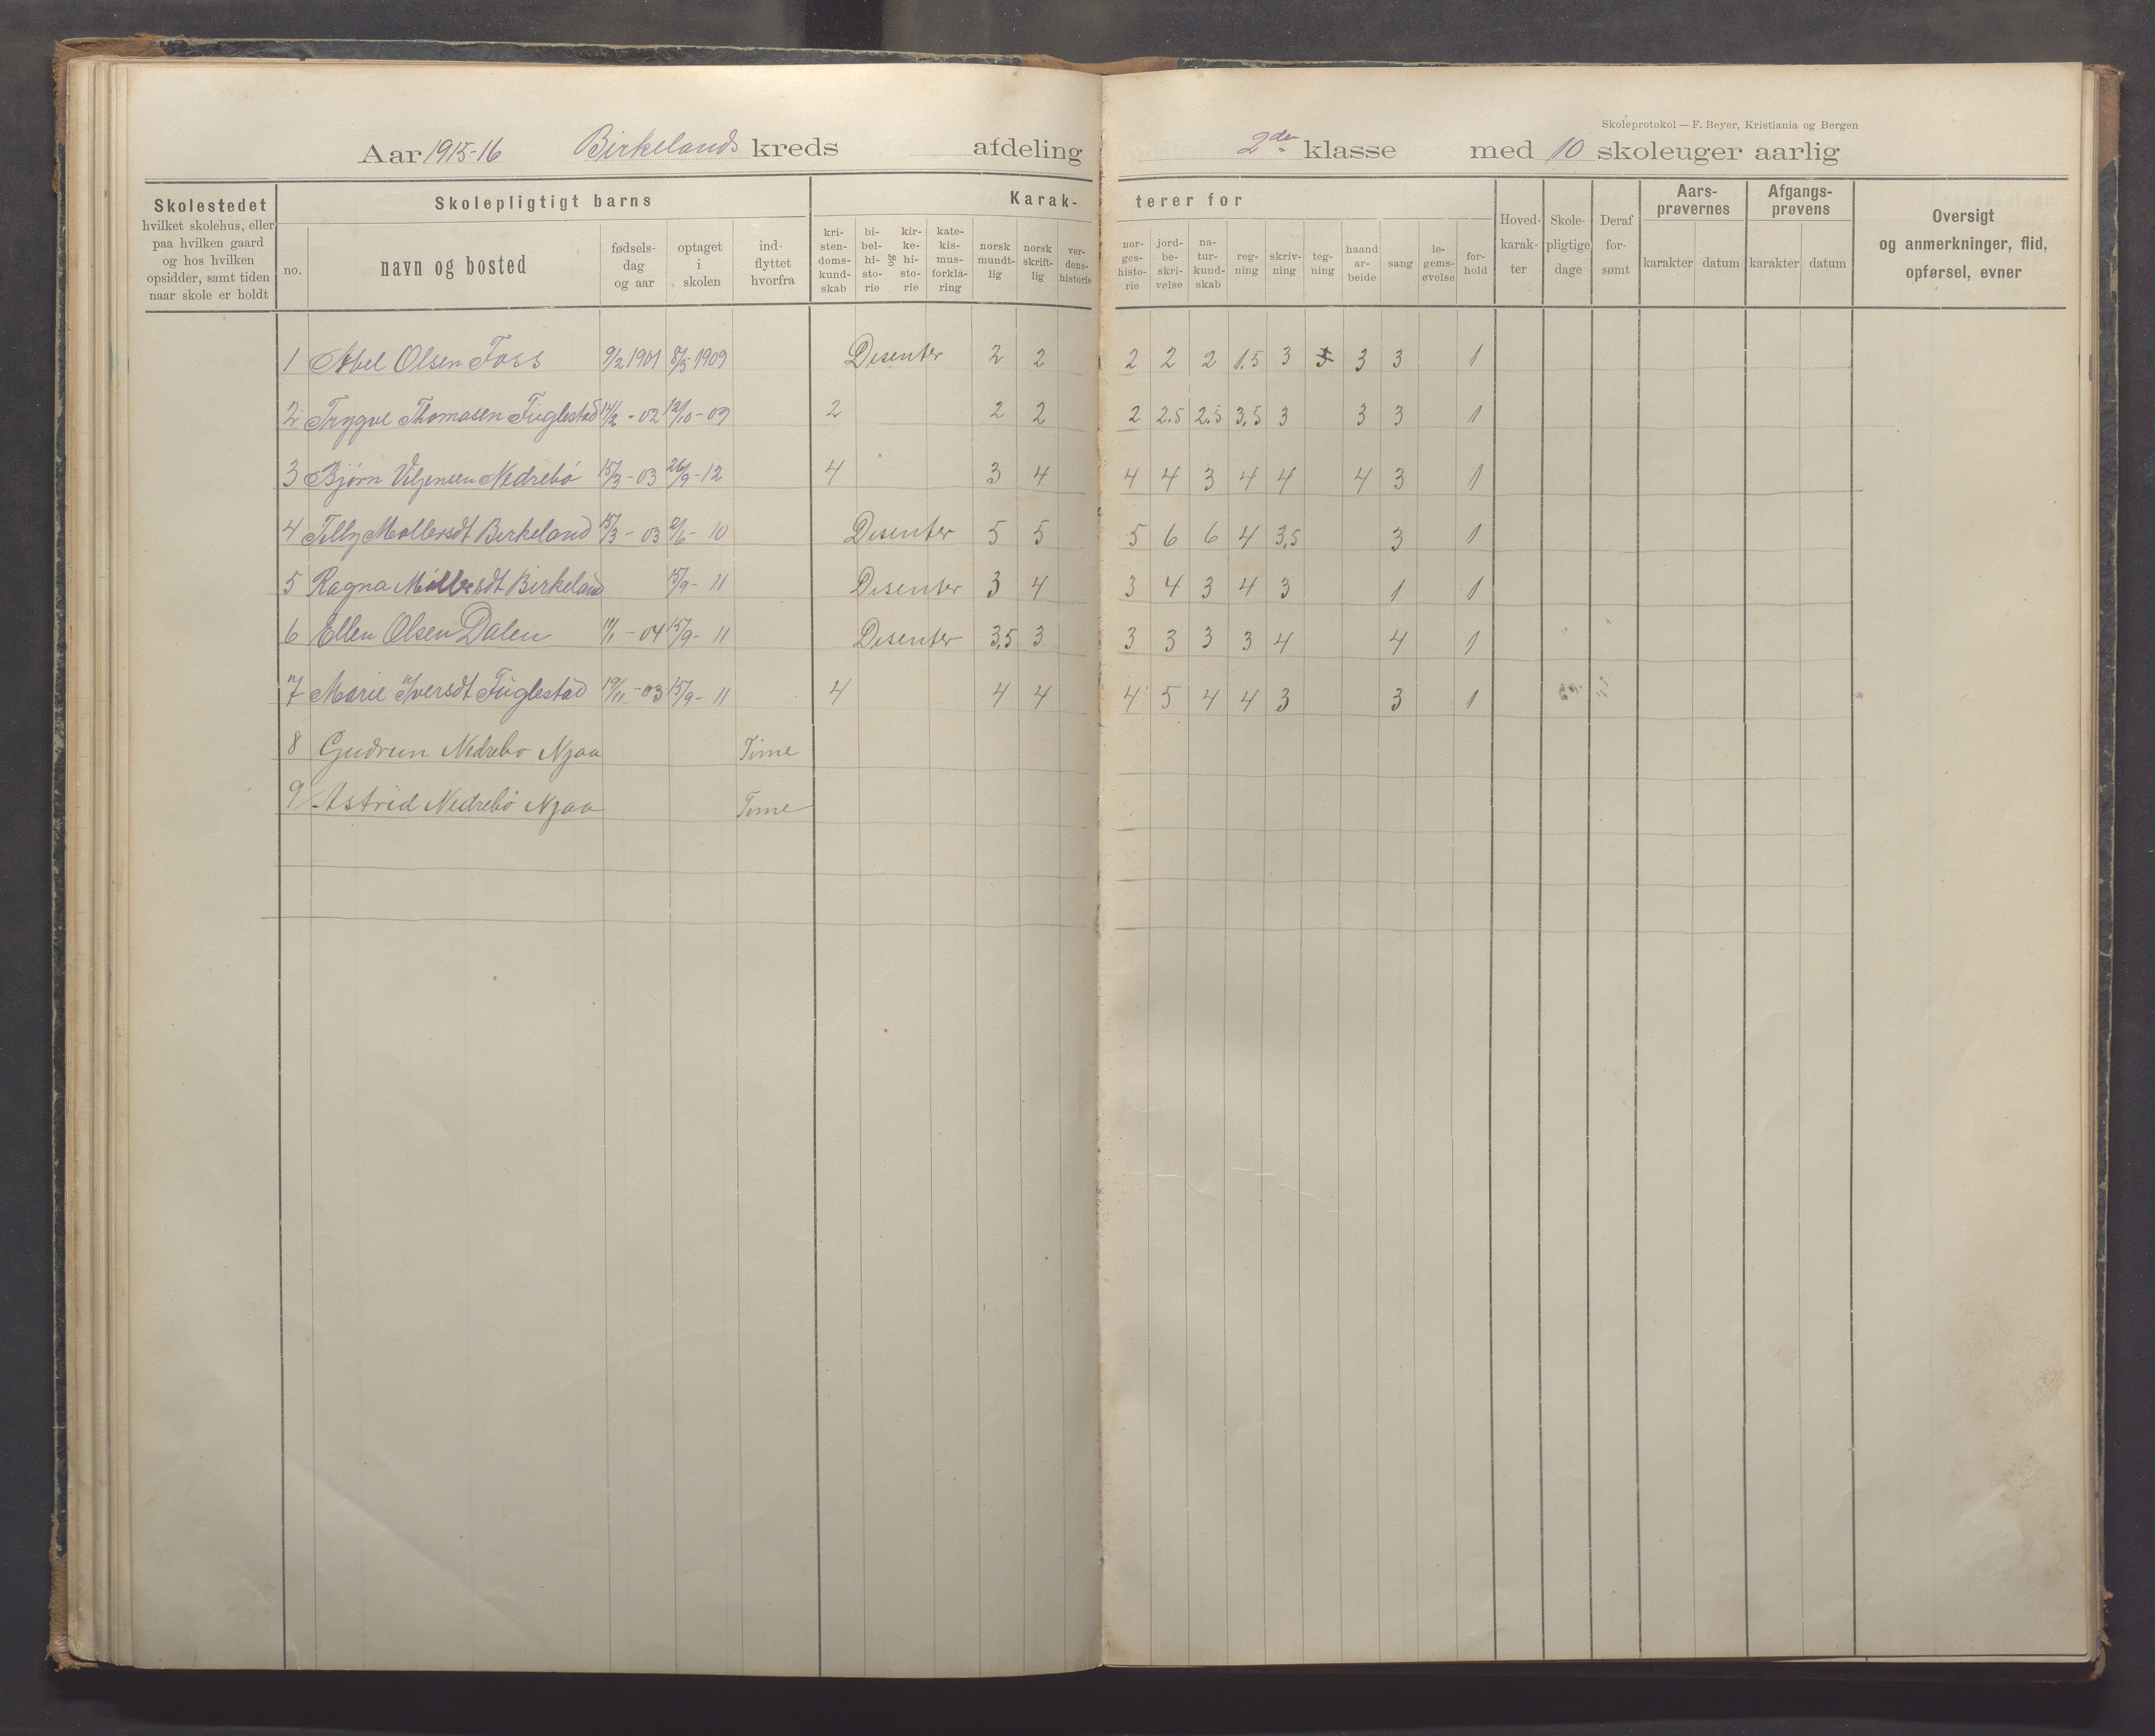 Skoleprotokol — F. Beyer, Kristiania og Bergen
Aar 1915-16 Birkelands kreds afdeling 2den klasse med 10 skoleuger aarlig
Skolestedet
hvilket skolehus, eller
paa hvilken gaard
og hos hvilken
opsidder, samt tiden
naar skole er holdt
Skolepligtigt barns
no.
navn og bosted
fødsels-
dag
og aar
optaget
i
skolen
ind-
flyttet
hvorfra
Karak-
terer for
kri-
sten-
doms-
kund-
skab
bi-
bel-
hi-
sto-
rie
og
kir-
ke-
hi-
sto-
rie
kate-
kis-
mus-
forkla-
ring
norsk
mundt-
lig
norsk
skrift-
lig
ver-
dens-
historie
nor-
ges-
histo-
rie
jord-
be-
skri-
velse
na-
tur-
kund-
skab
reg-
ning
skriv-
ning
teg-
ning
haand
ar-
beide
sang
le-
gems-
øvelse
for-
hold
Hoved-
karak-
ter
Skole-
pligtige
dage
Deraf
for-
sømt
Aars-
prøvernes
karakter datum
Afgangs-
prøvens
karakter datum
Oversigt
og anmerkninger, flid,
opførsel, evner
1 Abel Olsen Foss 9/2 1901 8/5 1909 Disenter 2 2 2 2 2 1.5 3 3 3 1
2 Trygve Thomasen Fuglestad 14/2 - 02 12/10 - 09 2 2 2 2 2.5 2.5 3.5 3 3 3 1
3 Bjørn Nedrebö 15/3 - 03 26/9 - 12 4 3 4 4 4 3 4 4 4 3 1
4 Tilly Birkeland 15/3 - 03 2/6 - 10 Disenter 5 5 5 6 6 4 3,5 3 1
5 Ragna Birkeland 15/9 - 11 Disenter 3 4 3 4 3 4 3 1 1
6 Ellen Olsen Dalen 11/1 - 04 15/9 - 11 Disenter 3,5 3 3 3 3 3 4 4 1
7 Marie Iversdt Fuglestad 19/11 - 03 15/9 - 11 4 4 4 4 5 4 4 3 3 1
8 Gudrun Nedrebo Njaa Time
9 Astrid Nedrebö Njaa Time